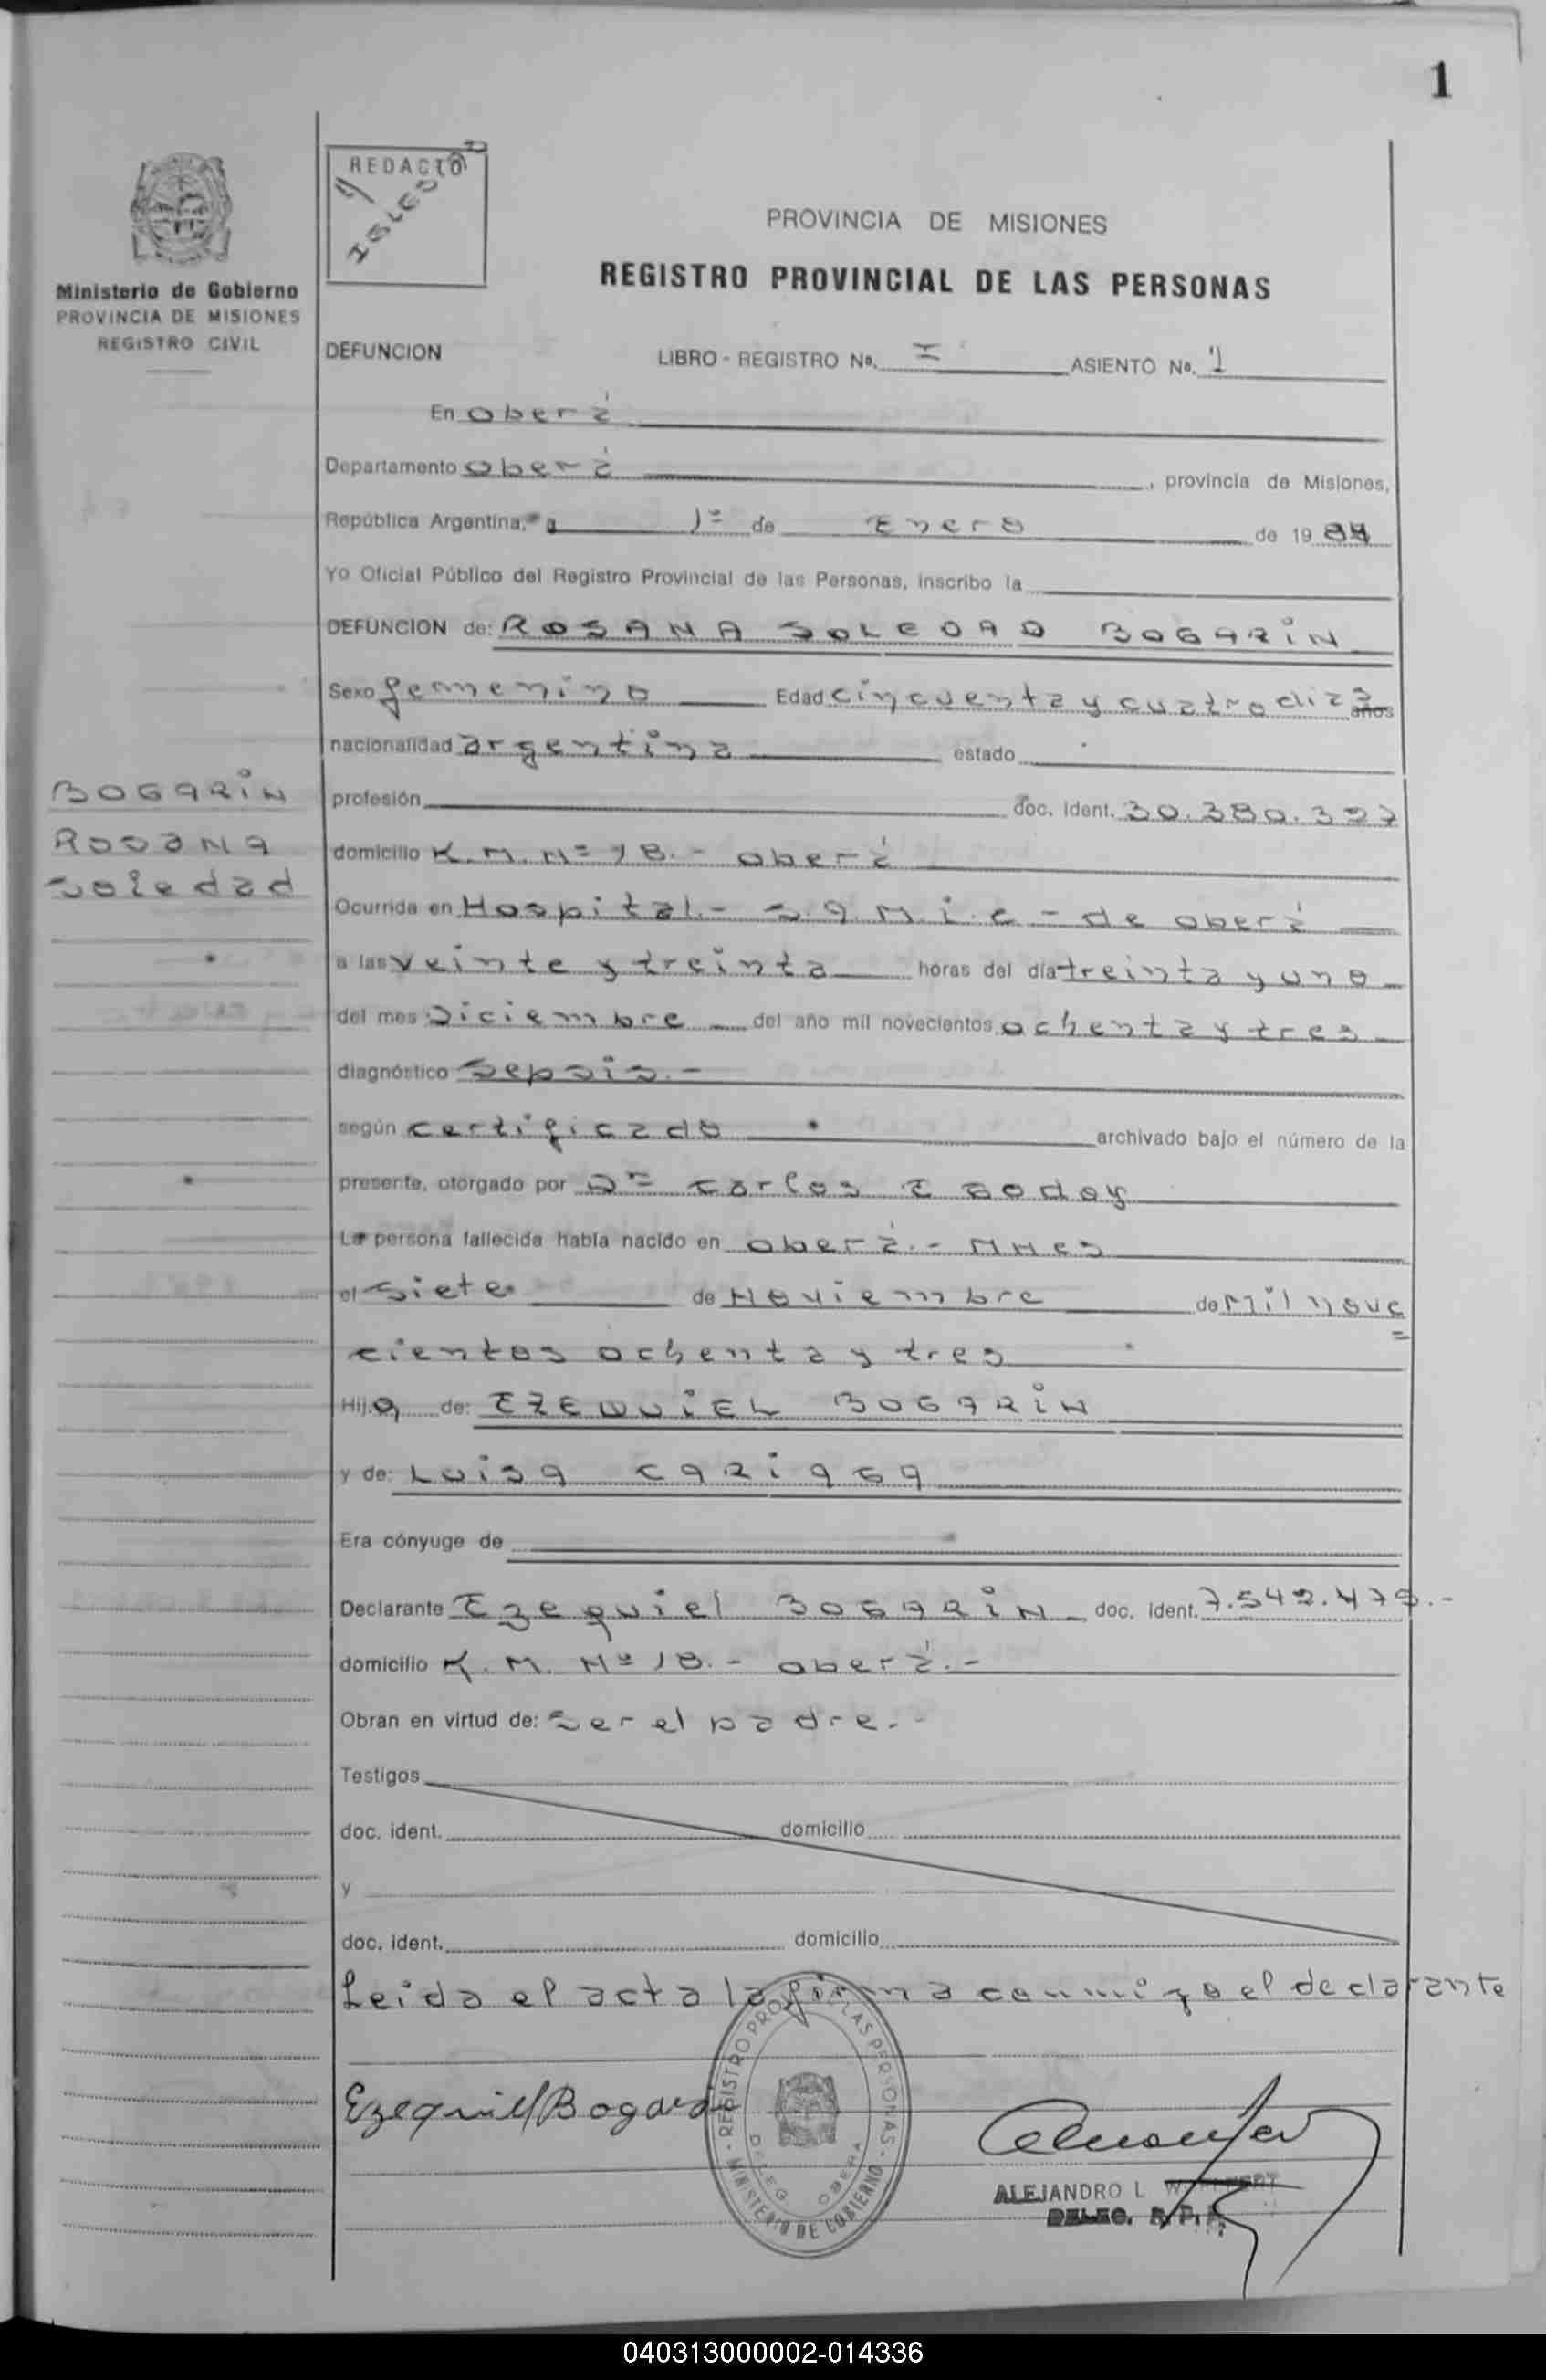 1
REDACTÓ
Ministerio de Gobierno
PROVINCIA DE MISIONES
REGISTRO CIVIL
PROVINCIA DE MISIONES
REGISTRO PROVINCIAL DE LAS PERSONAS
DEFUNCION LIBRO - REGISTRO No. I ASIENTO No. 1
En Oberá
Departamento Oberá, provincia de Misiones,
República Argentina, a 1º de Enero de 1984
Yo Oficial Público del Registro Provincial de las Personas, inscribo la
DEFUNCION de: ROSANA SOLEDAD BOGARiN
Sexo femenino Edad cincuenta y cuatro días años
nacionalidad argentina estado
profesión doc. ident. 30.380.397
domicilio K.M. Nº 18.- Oberá
BOGARiN
ROSANA
Soledad
Ocurrida en Hospital.- S.A.M.i.c - de Oberá
a las veinte y treinta horas del día treinta y uno
del mes Diciembre del año mil novecientos ochenta y tres
diagnóstico Sepsis.-
según certificado archivado bajo el número de la
presente, otorgado por Dr Carlos E Godoy
La persona fallecida había nacido en Oberá.- MNes
el Siete de Noviembre de Mil nove
cientos ochenta y tres
Hija de: EZEQUiEL BOGARiN
y de: LUiSA
Era cónyuge de
Declarante Ezequiel BOGARiN doc. ident. 7.542.479.-
domicilio K.M. Nº 18.- Oberá.-
Obran en virtud de: Ser el padre.-
Testigos
doc. ident. domicilio
y
doc. ident. domicilio
Leida el acta la firma conmigo el declarante
Ezequiel Bogarin
REGISTRO PROV. DE LAS PERSONAS - MINISTERIO DE GOBIERNO
DELEG. OBERA
ALEJANDRO L
DELEG. R.P.P.
040313000002-014336